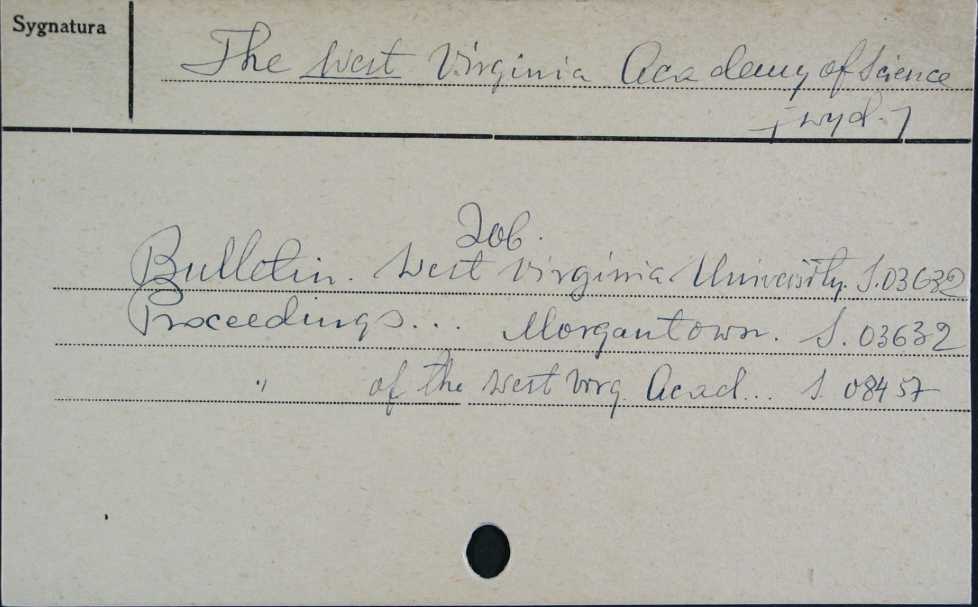 Sygnatura
The West Virginia Academy of Science
[wyd.]
Zob.
Bulletin. West Virginia University. S.03632
Proceedings... Morgantown. S. 03632
" of the West Virg. Acad... S. 08457